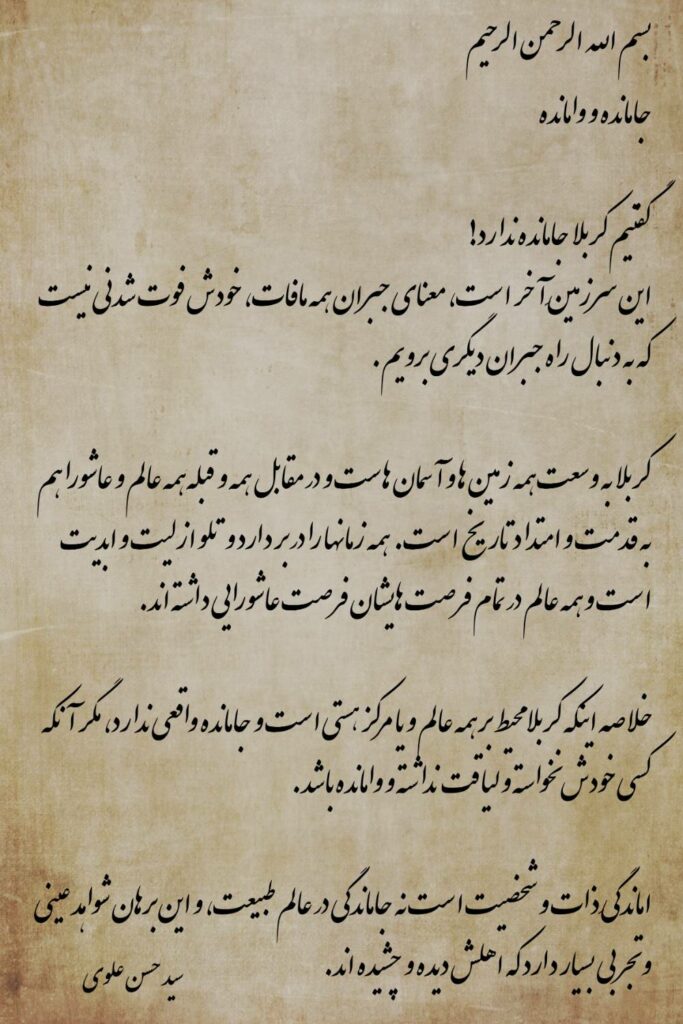 بسم الله الرحمن الرحیم
جامانده و وامانده
گفتیم کربلا جامانده ندارد!
این سرزمین آخر است، معنای جبران همه مافات، خودش فوت شدنی نیست
که به دنبال راه جبران دیگری برویم.
کربلا به وسعت همه زمین ها و آسمان هاست و در مقابل همه و قبله همه عالم و عاشورا هم
به قدمت و امتداد تاریخ است. همه زمانها را در بر دارد و تلو ازلیت و ابدیت
است و همه عالم در تمام فرصت هایشان فرصت عاشورایی داشته اند.
خلاصه اینکه کربلا محیط بر همه عالم و یا مرکز هستی است و جامانده واقعی ندارد، مگر آنکه
کسی خودش نخواسته و لیاقت نداشته و وامانده باشد.
اماندگی ذات و شخصیت است نه جاماندگی در عالم طبیعت، و این برهان شواهد عینی
و تجربی بسیار دارد که اهلش دیده و چشیده اند.
سید حسن علوی